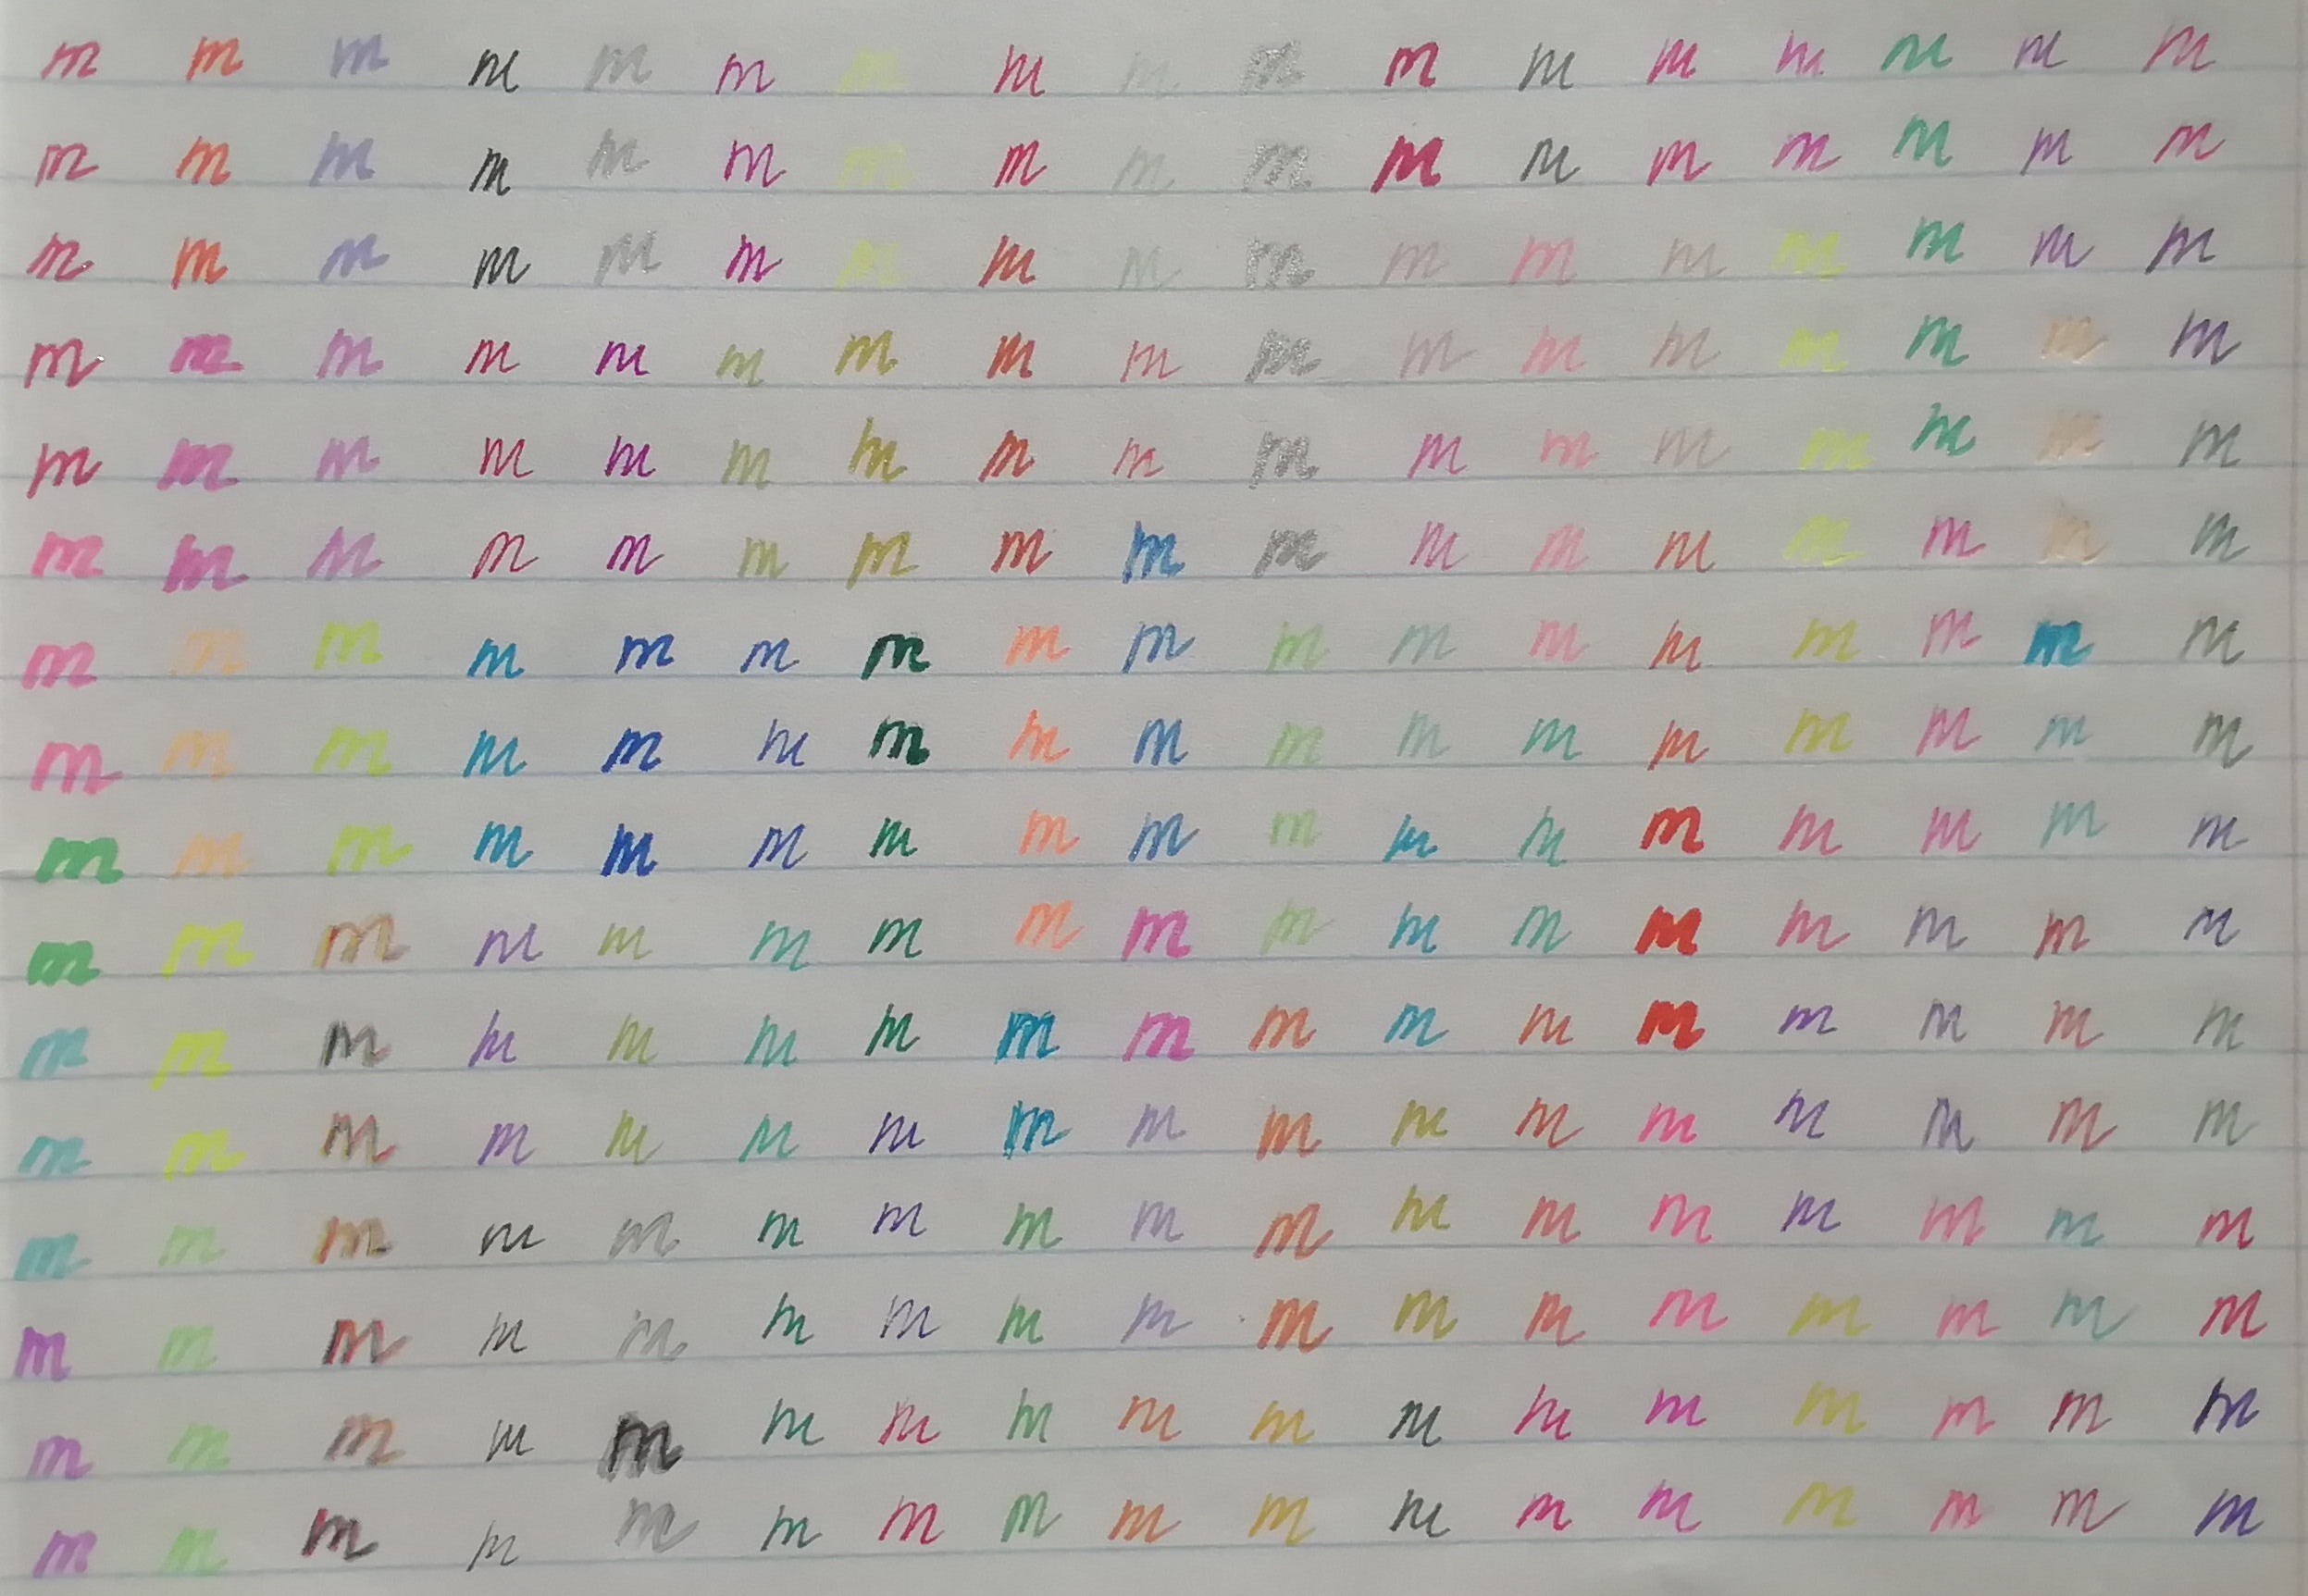 m m m m m m m m m m m m m m m m m
m m m m m m m m m m m m m m m m m
m m m m m m m m m m m m m m m m m
m m m m m m m m m m m m m m m m m
m m m m m m m m m m m m m m m m m
m m m m m m m m m m m m m m m m m
m m m m m m m m m m m m m m m m m
m m m m m m m m m m m m m m m m m
m m m m m m m m m m m m m m m m m
m m m m m m m m m m m m m m m m m
m m m m m m m m m m m m m m m m m
m m m m m m m m m m m m m m m m m
m m m m m m m m m m m m m m m m m
m m m m m m m m m m m m m m m m m
m m m m m m m m m m m m m m m m m
m m m m m m m m m m m m m m m m m